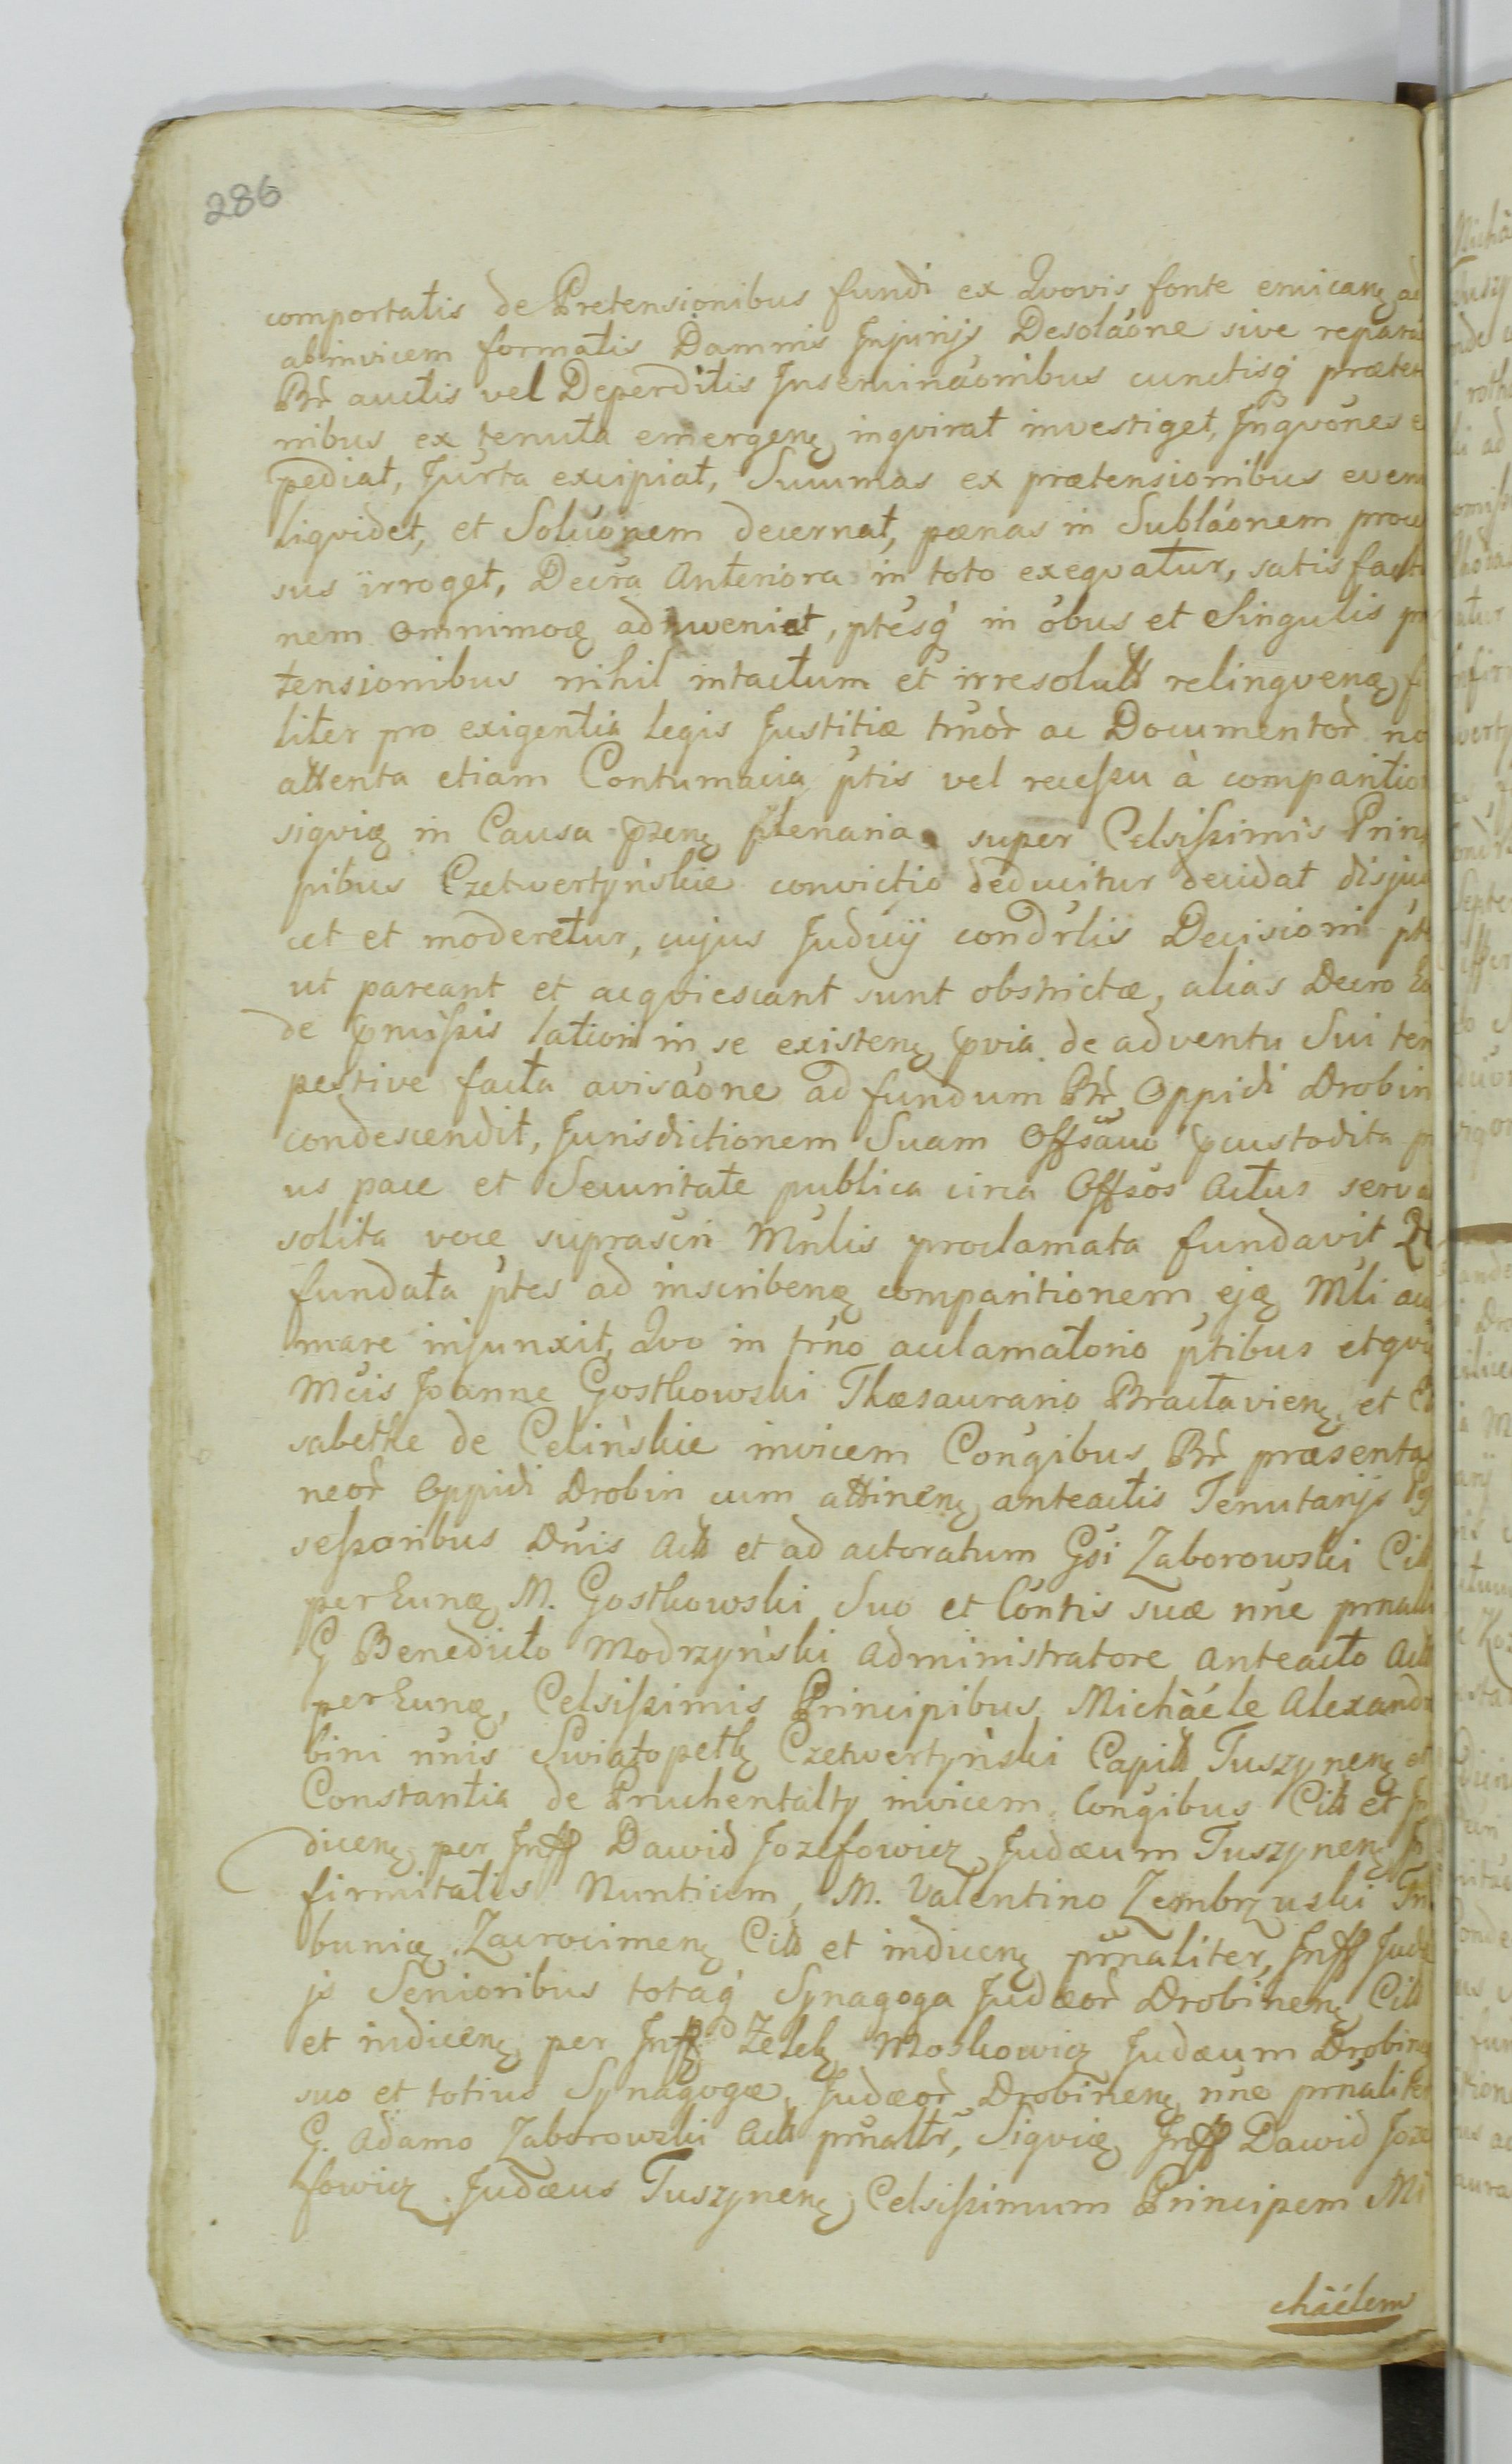 286
comportatis de Pretensionibus fundi ex Qvovis fonte emicanę ad
abinvicem formatis Damnis Injurijs Desoláone sive repara
Br̃ auctis vel Deperditis Inseminaónibus cunctisq́ præten
nibus ex tenuta emergenę inqvirat investiget, Inqvónes e
pediat, Jurta excipiat, Summas ex prætensionibus even
liqvidet, et Solucónem decernat, pænas in Subláonem proce
sus irroget, Decra Anteriora in toto exeqvatur, satis facti
nem omnimoę adinveniat, ptésq́ in óbus et Singulis præ
tensionibus nihil intactum et irresolutt relinqvenę f
liter pro exigentia Legis Justitiæ trńor̃ ac Documentor̃ no
attenta etiam Contumacia ptis vel recessu à comparitio
siqvię in Causa pzenę plenaria super Celsissimis Prin
pibus Czetwertyńskie convictio deducitur decidat disju
cet et moderetur, cujus Judicij condrlis Decisioni pt
ut pareant et acqviescant sunt obstrictæ, alias Decro
de pmissis lationi in se existenę pvia de adventu Sui tem
pestive facta avisáone ad fundum Br̃ Oppidi Drobin
condescendit, Jurisdictionem Suam Offsáuo pcustodita p
us pace et Securitate publica circa Offsós Actus serva
solita voce suprascri Mńlis proclamata fundavit Q
fundata ptes ad inscribenę comparitionem ejǫ Mli acla
mare injunxit, Qvo in trńo acclamatorio ptibus etqvi
Mcis Joanne Gostkowski Thæsaurario Bractavienę et E
sabethe de Celińskie invicem Cońgibus Br̃ præsenta
neor̃ Oppidi Drobin cum attinenę anteactis Tenutarijs Po
sessoribus Dnis Actt et ad actoratum Gsi Zaborowski Citt
per Eunę M. Gostkowski Suo et Cóntis suæ nńe prnali
G Benedicto Modrzyński Administratore Anteacto Actt
per Eunę, Celsissimis Principibus Michàéle Alexandr
bini nńis Swiatopełk Czetwertyński Capitt Tuszynenę et
Constantia de Pruchentalty invicem Cońgibus Citt et
dicenę per Inff Dawid Jozefowicz Judæum Tuszynenę In
firmitatis Nuntium, M. Valentino Zembrzuski Tri
bunię Zacrocimenę Citt et indicenę prnaliter, Inff Judæ
js Senioribus totaq́ Synagoga Judæor̃ Drobinenę Citt
et indicenę per Inff Zelek Moskowicz Judæum Drobinę
suo et totius Synagogæ Judæor̃ Drobinenę nńe prnaliter
G. Adamo Zaborowski Actt prnaltr, Siqvię Inff Dawid Joze
fowicz Judæus Tuszynenę Celsissimum Principem Mi
chäélem